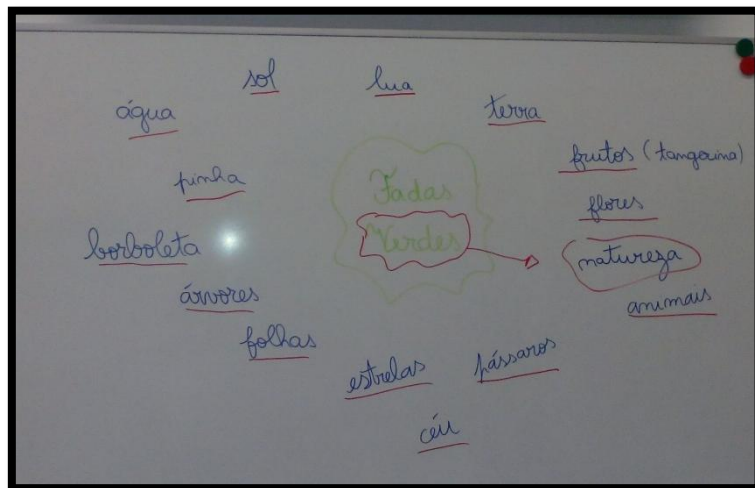 sol
lua
água
terra
frutos (tangerina)
pinha
Fadas
flores
Verdes
borboleta
natureza
árvores
animais
folhas
estrelas
pássaros
céu